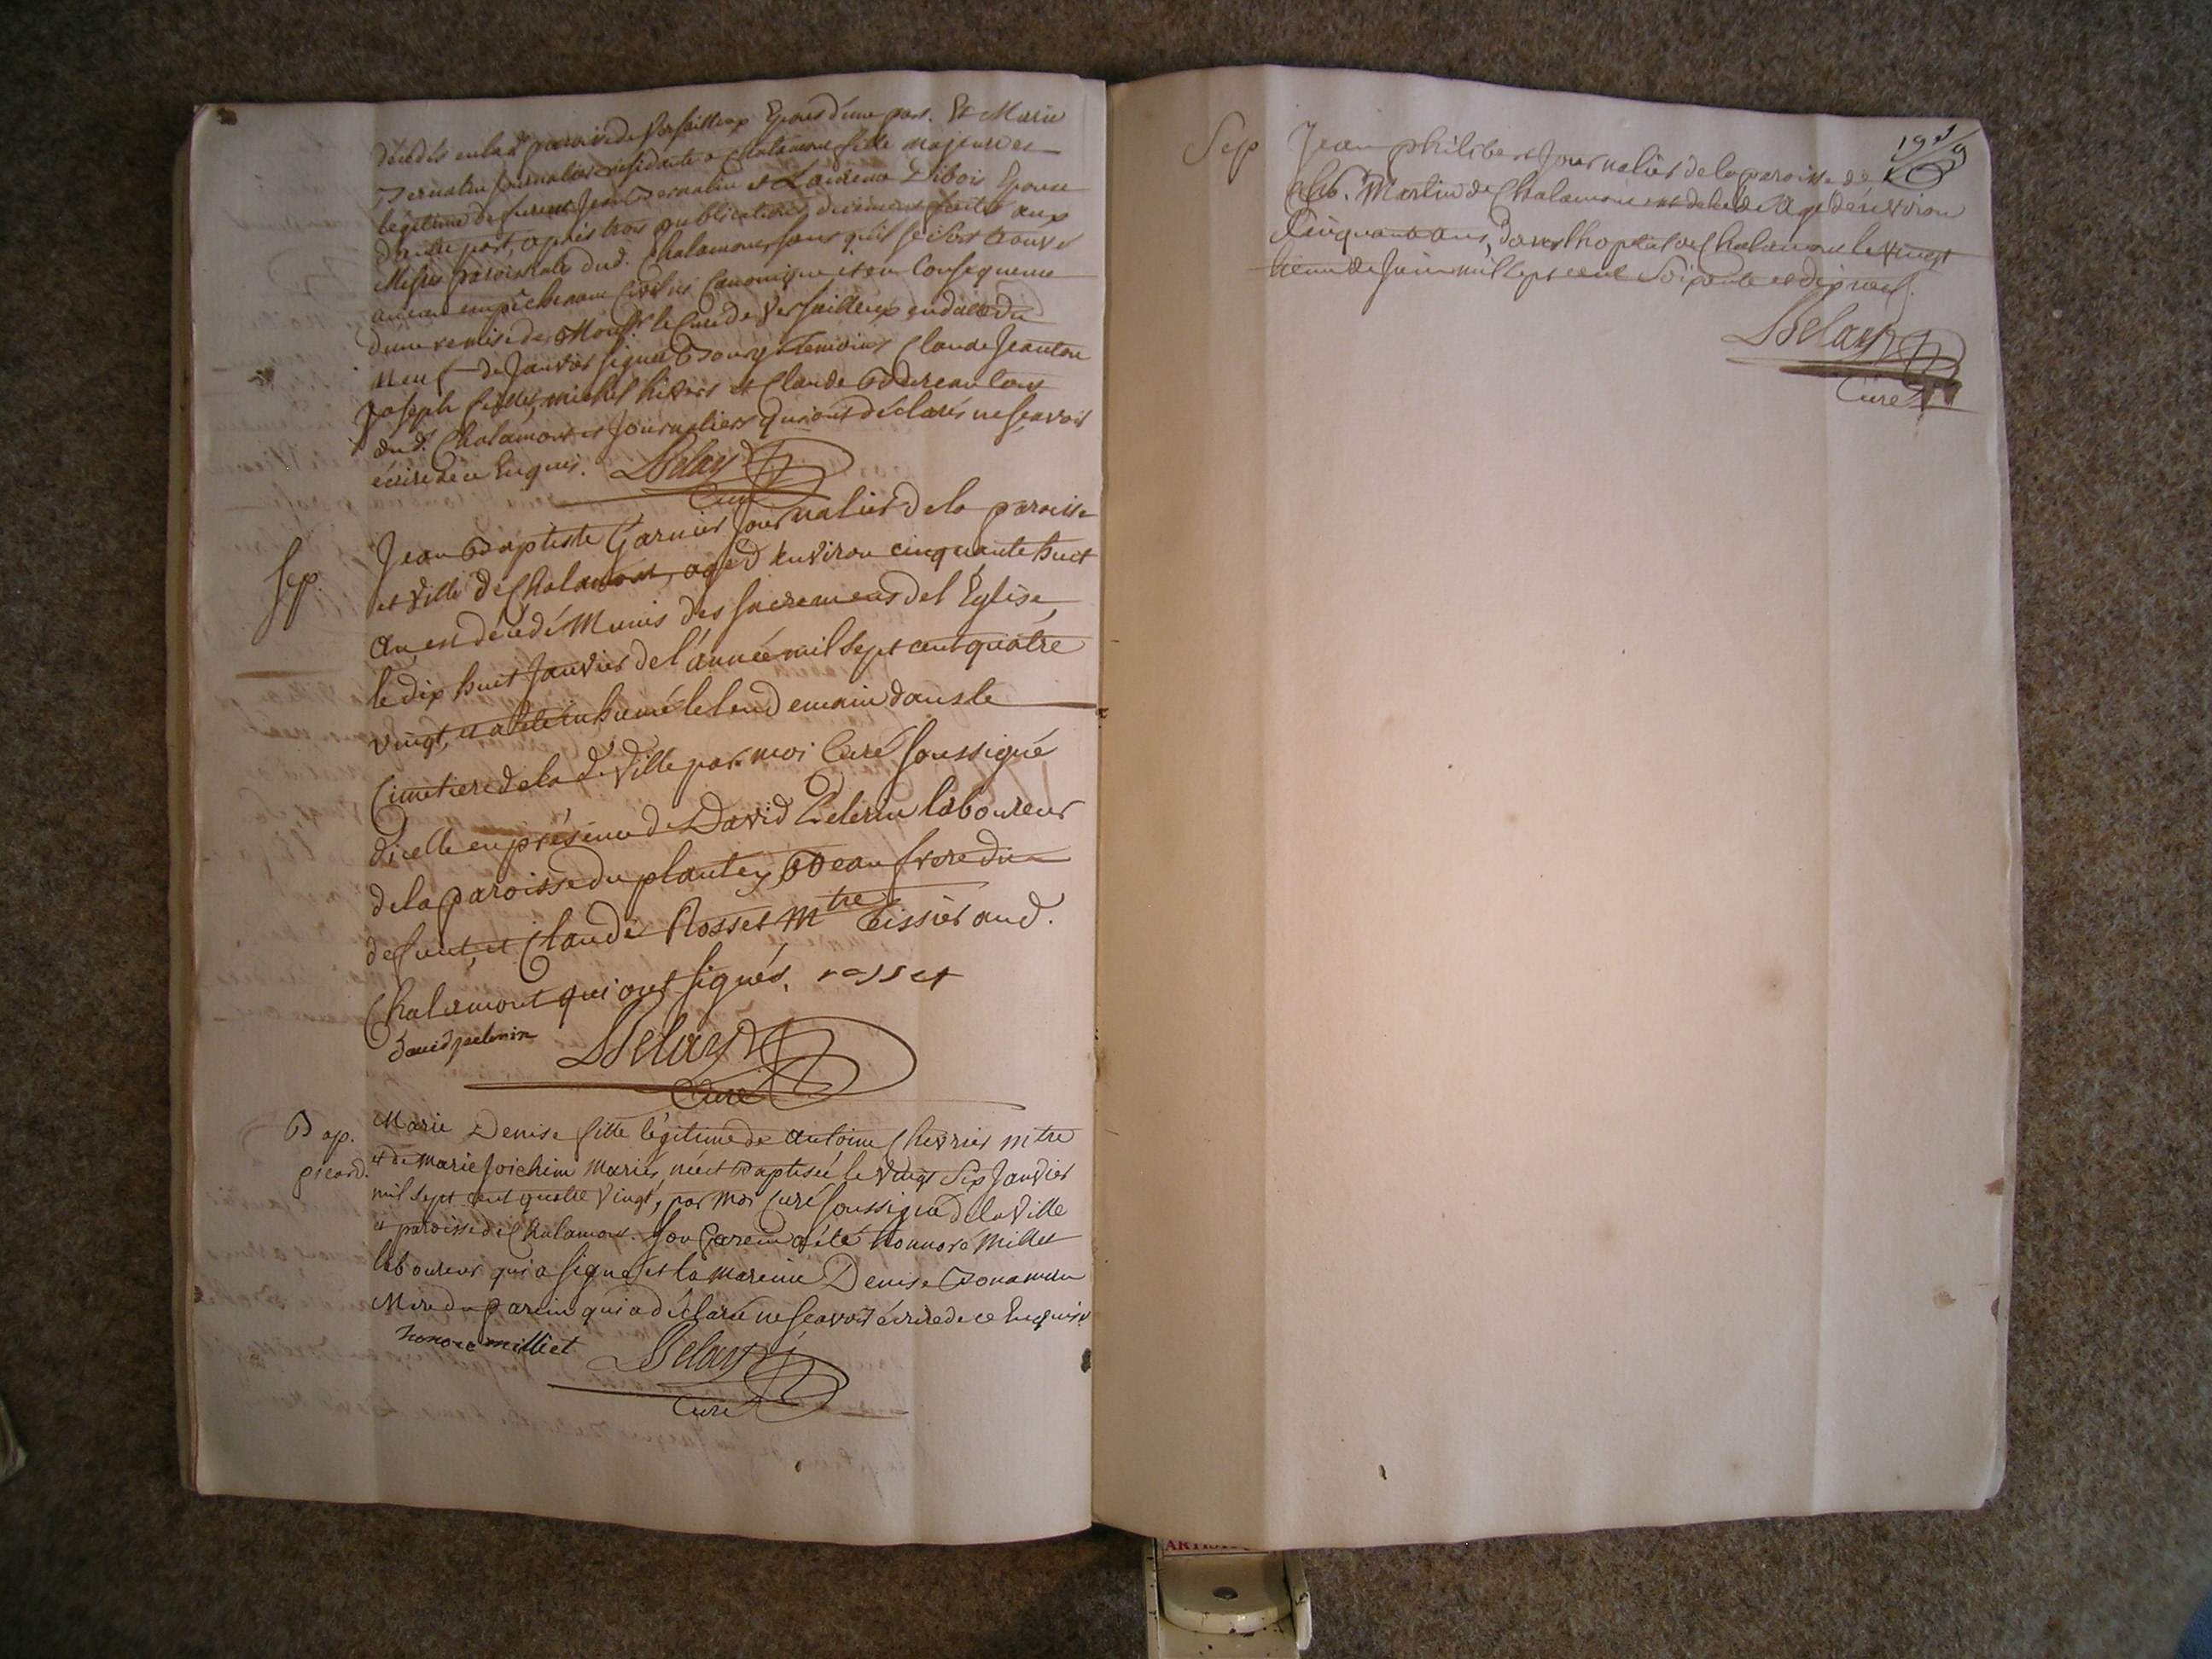 décédés en lad. paroisse de Versailleux Epoux d'une part. Et Marie
journaliere residante a Chalamont fille majeure et
légitime de furent Jean et Laurence Dibois Epouse
d'autre part, après trois publications duement faites aux
Messes paroissiales dud. Chalamont sans qu'il se soit trouvé
aucun empêchement Civil ni Canonique et en Consequence
d'une remise de Monsr. le Curé de Versailleux en datte du
neuf de Janvier signée Boury Temoins Claude Jeanton
Joseph michel hivers et Claude tous
dud. Chalamont et Journaliers qui ont déclarés ne scavoir
écrire de ce Enquis. Delay
Curé
Sep. Jean Baptiste Garnier Journalier de la paroisse
et Ville de Chalamont, agé d'environ cinquante huit
an, est décédé Munis des Sacremens de l'Eglise,
le dix huit Janvier de l'année mil sept cent quatre
vingt, et a été inhumé le lendemain dans le
Cimetiere de la d. Ville par moi Curé soussigné
d'icelle en présence de David Pelerin laboureur
de la paroisse du plantey Beaufrere du
defunt, et Claude Rosset Mtre tissier aud.
Chalamont qui ont signés. rosset
david pelerin Delay
Curé
Bap. Marie Denise fille légitime de Antoine Chevrier mtre
picard. et de Marie Joichim Mariés, née et Baptisée le vingt Six Janvier
mil sept cent quatre vingt, par Moi Curé soussigné de la Ville
et paroisse de Chalamont. Son Parein a été honnoré Millet
laboureur qui a signé, et la Mareine Denise
Mere du parein qui a déclaré ne scavoir écrire de ce Enquise
honore milliet Delay
Curé
199
Sep Jean philibert Journalier de la paroisse de
St. Martin de Chalamont est décédé agé d'environ
Cinquante ans, dans l'hopital de Chalamont le vingt
de Juin mil sept cent soixante et dix neuf.
Delay
Curé
ARTIST